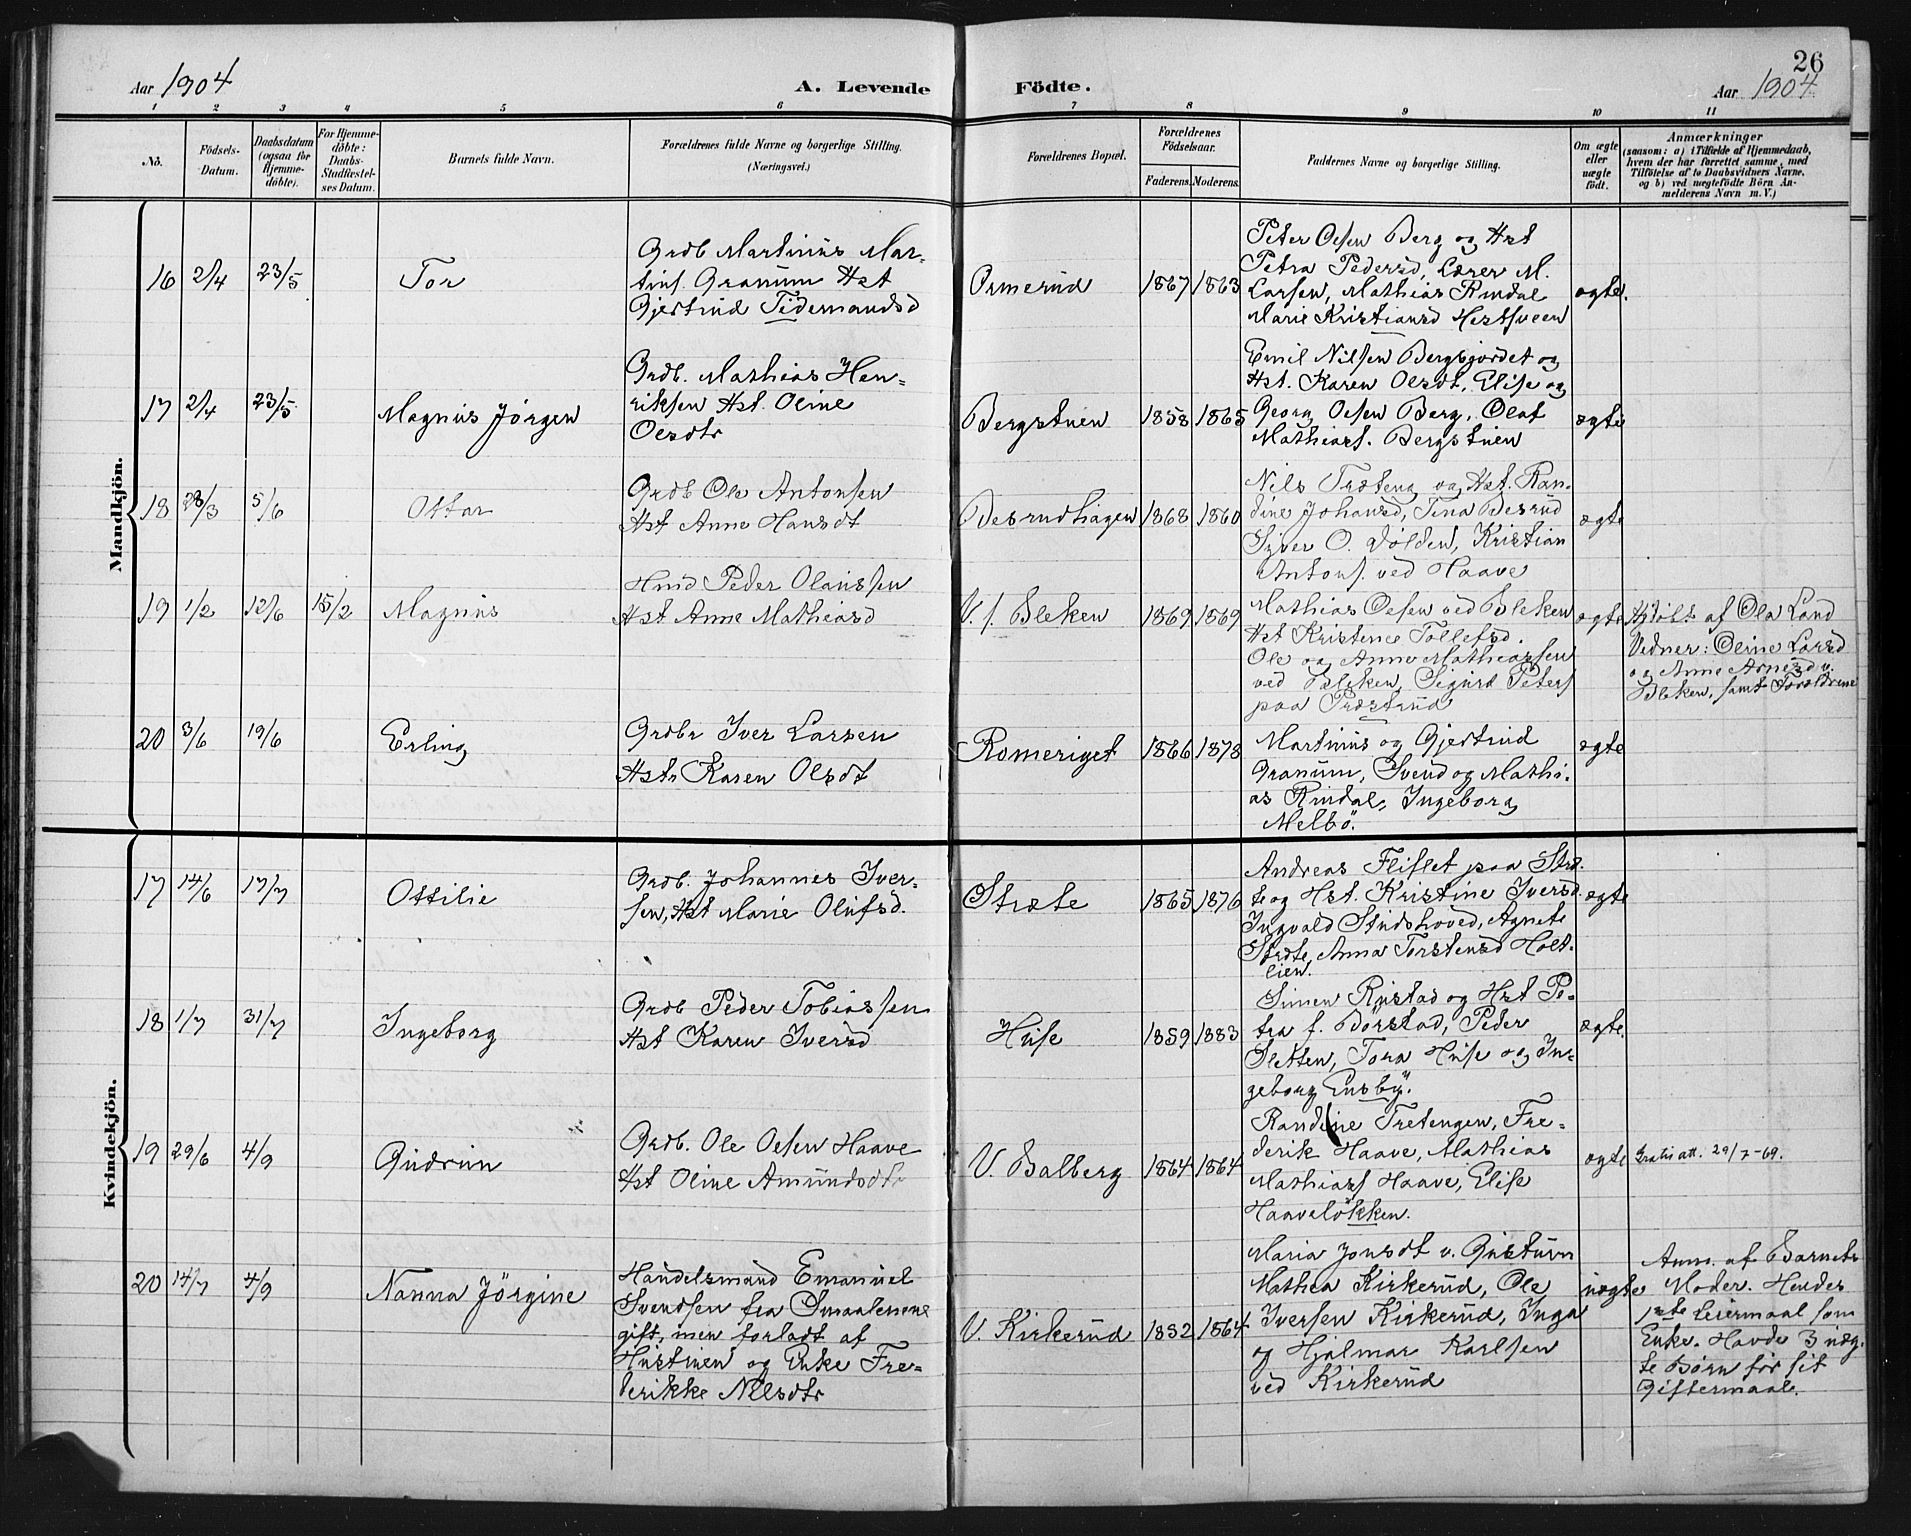 26
Aar 1904
A. Levende
Födte.
Aar 1904
1 2 3 4 5 6 7 8 9 10 11
No.
Födsels-
Datum.
Daabsdatum
(ogsaa for
Hjemme-
döbte).
For Hjemme-
döbte:
Daabs-
Stadfæstel-
ses Datum.
Barnets fulde Navn.
Forældrenes fulde Navne og borgerlige Stilling.
(Næringsvei.)
Forældrenes Bopæl.
Forældrenes
Födselsaar.
Faderens.
Moderens.
Faddernes Navne og borgerlige Stilling.
Om ægte
eller
uægte
födt.
Anmærkninger
(saasom: a) i Tilfælde af Hjemmedaab,
hvem der har forrettet samme, med
Tilföielse af to Daabsvidners Navne,
og b) ved uægtefödte Börn An-
melderens Navn m. V.)
Mandkjön.
16 2/4 23/5
Tor
Grdb Martinus Mar-
tins. Granum Hst
Gjertrud Tidemandsd
Ormerud
1867 1863
Peter Olsen Berg og Hst
Petra Pedersd, Lærer M.
Larsen, Mathias Rindal
Marie Kristiansd Hestsveen
ægte.
17 2/4 23/5
Magnus Jörgen
Grdb. Mathias Hen-
riksen Hst. Oline
Olsdtr
Bergstuen
1858 1865
Emil Nilsen Bergsjordet og
Hst. Karen Olsdt, Elise og
Georg Olsen Berg, Olaf
Mathias. Bergstuen
ægte
18 28/3 5/6
Ottar
Grdb Ole Antonsen
Hst Anne Hansdt
Besrudhagen
1868 1860
Nils Træteng og Hst. Ran-
dine Johansd, Tina Besrud
Syver O. Volden, Kristian
Antons. ved Haave
ægte
19 1/2 12/6 15/2
Magnus
Hmd Peder Olaussen
Hst Anne Mathiasd
V. f. Bleken
1869 1869
Mathias Olsen ved Bleken
Hst Kristence Tollefsd.
Ole og Anne Mathiassen
ved Bleken, Sigurd Peters
paa Præstrud
ægte
Hjdöbt af Ola Land
Vidner: Oline Larsd
og Anne Arnesd v.
Bleken, samt Forældrene
20 3/6 19/6
Erling
Grdbr Iver Larsen
Hstr Karen Olsdt
Romeriget
1866 1878
Martinus og Gjertrud
Granum, Svend og Mathi-
as Rindal, Ingeborg
Melbö.
ægte
Kvindekjön.
17 14/6 17/7
Ottilie
Grdb. Johannes Iver-
sen, Hst Marie Olufsd.
Stræte
1865 1876
Andreas Fliflet paa Stræ-
te og Hst. Kristine Iversd.
Ingvald Studshoved, Agnete
Stræte, Anna Torstensd Holt-
lien.
ægte
18 1/7 31/7
Ingeborg
Grdb Peder Tobiassen
Hst Karen Iversd
Huse
1859 1883
Simen Rustad og Hst Pe-
tra f. Börstad, Peder
Sletten, Tora Huse og In-
geborg Ensby.
ægte.
19 29/6 4/9
Gudrun
Grdb. Ole Olsen Haave
Hst Oline Amundsdtr
V. Balberg
1864 1864
Randine Tretengen, Fre-
derik Haave, Mathias
Mathias Haave, Elise
Haavelökken.
ægte
Gratis att. 29/7-69.
20 14/7 4/9
Nanna Jörgine
Handelsmand Emanuel
Svendsen fra Smaalenene
gift, men forladt af
Hustruen og Enke Fre-
derikke Nilsdtr
V. Kirkerud
1852 1864
Maria Jonsdt v. Gustum
Mathea Kirkerud, Ole
Iversen Kirkerud, Inga
og Hjalmar Karlsen
ved Kirkerud
uægte
Anm. af Barnets
Moder. Hendes
1ste Leiermaal som
Enke. Havde 3 uæg-
te Börn för sit
Giftermaal.